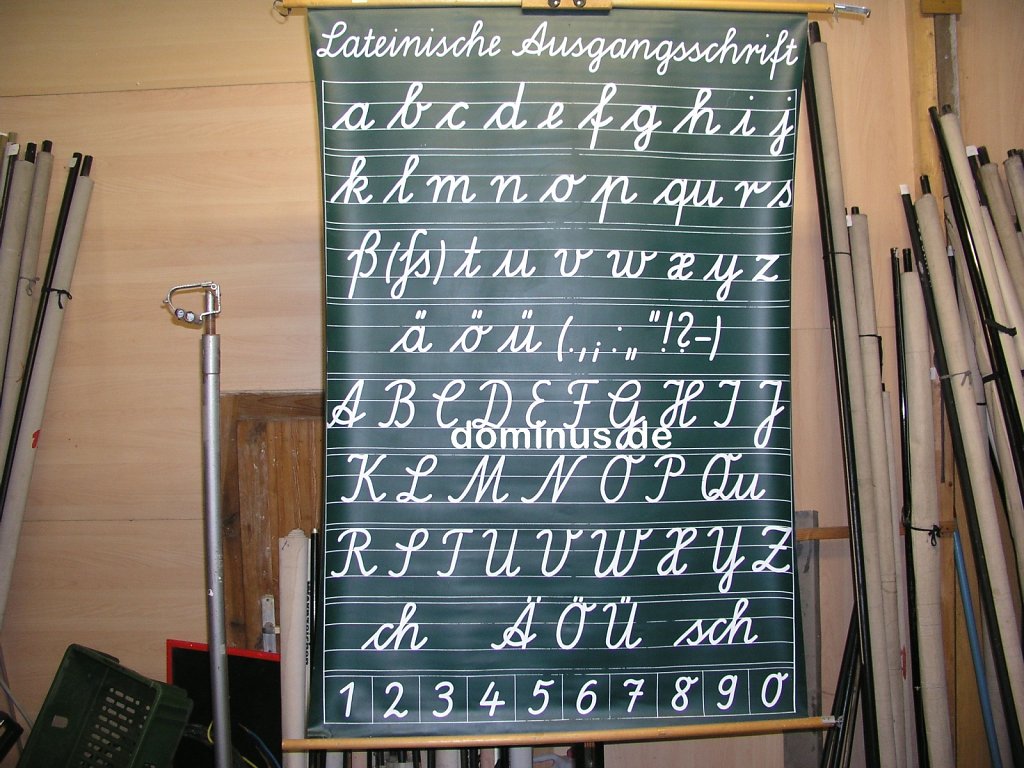 Lateinische Ausgangsschrift
a b c d e f g h i j
k l m n o p qu r s
ß (ſs) t u v w x y z
ä ö ü (.,; : „ “ ! ? -)
A B C D E F G H I J
dominus.de
K L M N O P Qu
R S T U V W X Y Z
ch Ä Ö Ü sch
1 2 3 4 5 6 7 8 9 0